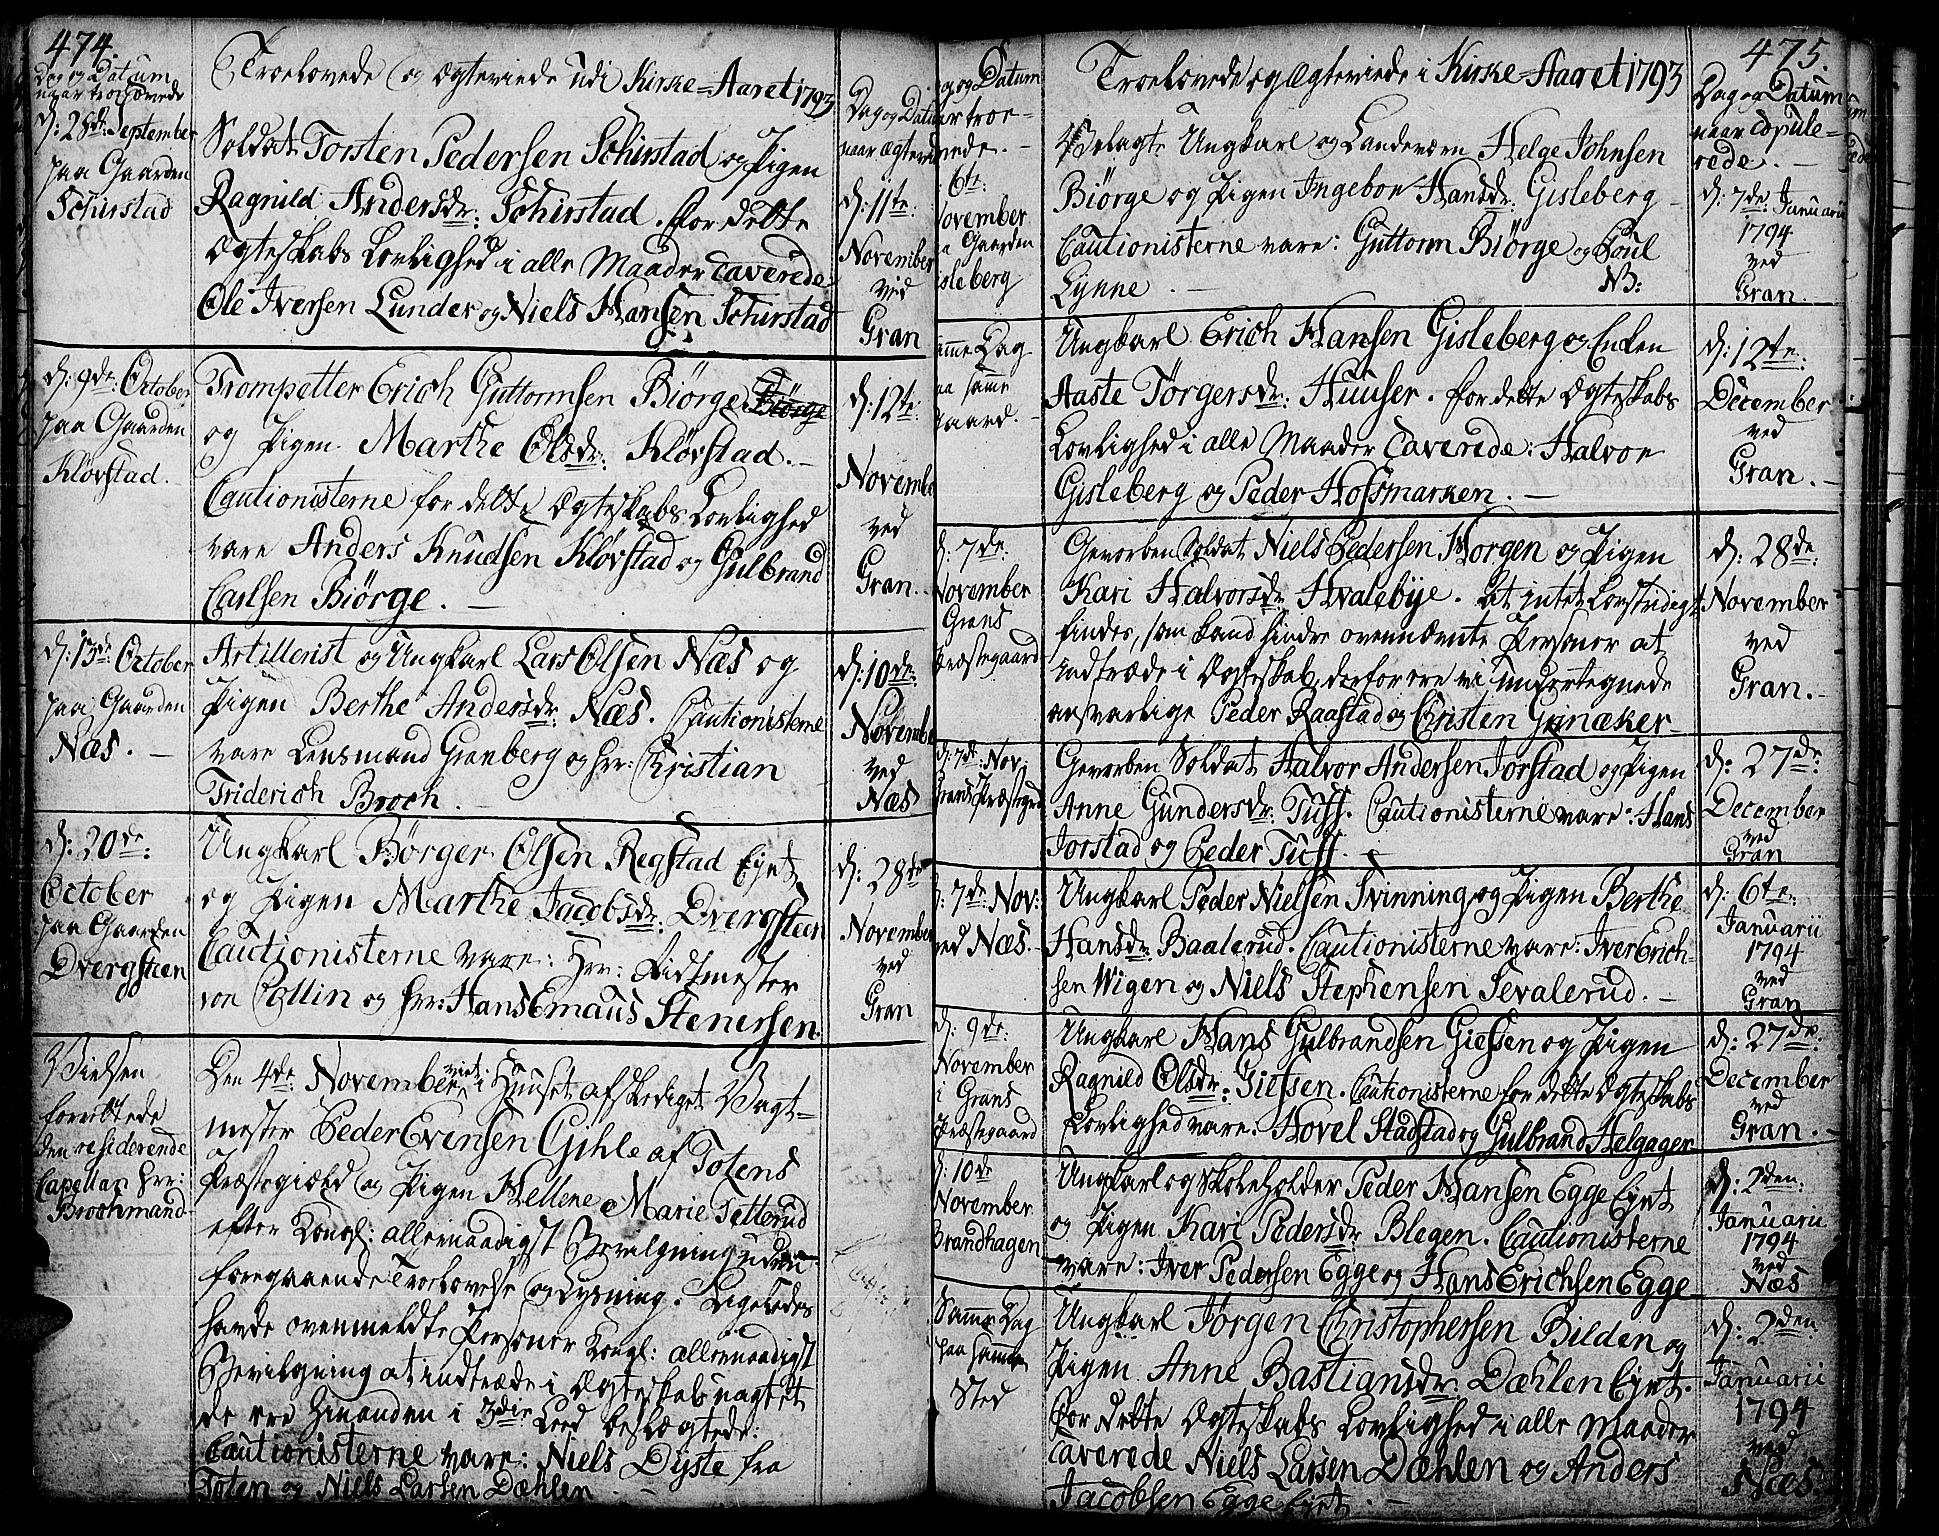 474.
Troelovede og Ægteviede udi Kirke=Aaret 1793
Dag og Datum
naar troelovede
Dag og Datum
naar ægteviede
d: 28de September
paa Gaarden
Schirstad
Soldat Torsten Pedersen Schirstad og Pigen
Ragnild Andersdr: Schirstad. for dette
Ægteskabs Lovlighed i alle Maader caverede
Ole Iversen Lunder og Niels Hansen Schirstad
d: 11te:
November
ved
Gran
d: 9de: October
paa Gaarden
Kløvstad.
Trompetter Erich Guttormsen Biørge Biörge
og Pigen Marthe Olsdr: Kløvstad. -
Cautionisterne for dette Ægteskabs Lovlighed
vare Anders Knudsen Kløvstad og Gulbrand
Carlsen Biörge. -
d: 12te:
November
ved
Gran.
d: 13de October
paa Gaarden
Næs. -
Artillerist og Ungkarl Lars Olsen Næs og
Pigen Berthe Andersdr: Næs. Cautionisterne
vare Lensmand Granberg og Hr: Christian
Friderich Broch.
d: 10de:
November
ved
Næs
d: 20de:
October
paa Gaarden
Dvergsteen
Ungkarl Børger Olsen Regstad Eyet
og Pigen Marthe Jacobsdr: Dvergsteen
Cautionisterne vare: Hr: Ridtmester
von Collin og Hr: Hans Emaus Stenersen.
d: 28de
November
ved
Gran
Vielsen
forrettede
den residerende
Capellan Hr:
Brochmand
Den 4de November viet i Huuset afskediget Vagt=
mester Peder Evensen Gihle af Totens
Præstegield og Pigen Hellene Marie Tetterud
efter Kongl: allernaadigst Bevilgning uden
foregaaende Troelovelse og Lysning. Ligeledes
havde ovenmeldte Personer Kongl: allernaadigst
Bevilgning at indtræde i Ægteskab uagtet
de ere hinanden i 3die Leed beslægtede:
Cautionisterne vare: Niels Dyste fra
Toten og Niels Larsen Dæhlen. -
475.
Troelovede og Ægteviede i Kirke=Aaret 1793
Datum
troe-
Dag og Datum
naar copule=
rede. -
6te:
November
Gaarden
Gisleberg
Ungkarl og Landeværn Helge Johnsen
Biørge og Pigen Ingebor Hansdr: Gisleberg
Cautionisterne vare: Guttorm Biørge og Poul
Lynne. - NB:
d: 7de: Januarii
1794
ved
Gran.
Samme Dag
paa samme
Gaard.
Ungkarl Erich Hansen Gisleberg og Enken
Aaste Törgersdr: Huuser. for dette Ægteskabs
Lovlighed i alle Maader caverede: Halvor
Gisleberg og Peder Hofsmarken. -
d: 12te:
December
ved
Gran. -
d: 7de:
November
Grans
Præstegaard
Gevorben Soldat Niels Pedersen Horgen og Pigen
Kari Halvorsdr: Hvalebye. At intet Lovstridigt
findes, som kand hindre ovennævnte Personer at
indtræde i Ægteskab, derfor ere vi undertegnede
ansvarlige Peder Raastad og Christen Grinaker
d: 28de:
November
ved
Gran. -
d: 7de: Nov:
Grans Præstegrd
Gevorben Soldat Halvor Andersen Jorstad og Pigen
Anne Gundersdr: Tuff. Cautionisterne vare: Hans
Jorstad og Peder Tuff. -
d: 27de:
December
ved
Gran
d: 7de Nov:
ved Næs. -
Ungkarl Peder Nielsen Svinning og Pigen Berthe
Hansdr: Baalerud. Cautionisterne vare: Iver Erich-
sen Wigen og Niels Stephensen Sevalerud. -
d: 6te:
Januarii
1794
ved
Gran
d: 9de:
November
i Grans
Præstegaard
Ungkarl Hans Gulbrandsen Giefsen og Pigen
Ragnild Olsdr: Giefsen. Cautionisterne for dette Ægteskabs
Lovlighed vare: Hovel Stadstad og Gulbrand Helgager
d: 27de:
December
ved
Gran. -
d: 10de
November
Brandhagen
Ungkarl og Skoleholder Peder Hansen Egge Eyet
og Pigen Kari Pedersdr: Blegen. Cautionisterne
vare: Iver Pedersen Egge og Hans Erichsen Egge
d: 2den:
Januarii
1794
ved
Næs
Samme Dag
paa samme
Sted
Ungkarl Jørgen Christophersen Bilden og
Pigen Anne Bastiansdr: Dæhlen Eyet.
for dette Ægteskabs Lovlighed i alle Maader
caverede Niels Larsen Dæhlen og Anders
Jacobsen Egge Eyet. -
d: 2den:
Januarii
1794
ved
Næs.